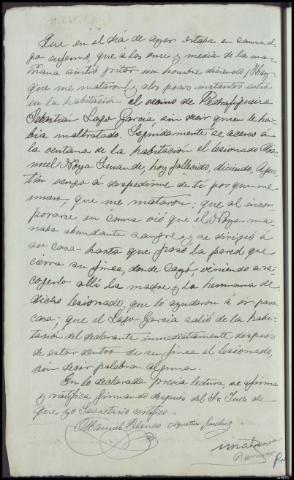 Que en el día de ayer estaba en cama
por enfermo, que a las once y media de la ma-
ñana sintió gritar un hombre diciendo ¡Hay
que me mataron! y a los pocos instantes entró
en la habitación el vecino de Pedrafigueira
Sebastian Lago Garcia sin decir quien le ha-
bia maltratado. Seguidamente se acercó a
la ventana de la habitación el lesionado Ma-
nuel Noya hoy fallecido, diciendo Agus-
tin vengo a despedirme de ti porque me
muero, que me mataron; que al incor-
porarse en cama vió que el Noya ma-
naba abundante sangre y se dirigió á
su casa hasta que pasó la pared que
cierra su finca, donde cayó, viniendo a re-
cogerlo allí la madre y la hermana de
dicho lesionado, que lo ayudaron á ir para
casa; que el Lago Garcia salió de la habi-
tación del declarante inmediatamente después
de estar dentro de su finca el lesionado,
sin decir palabra alguna.
En lo declarado previa lectura se afirma
y ratifica firmando después del Sr. Juez de
que yo Secretario certifico.
Manuel Agustin